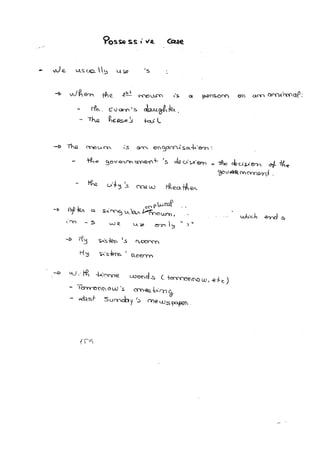 Possessive case
- We usually use 's :
→ when the 1st noun is a person or an animal:
- Mr. Evans's daughter.
- The horse's tail
→ The noun is an organisation:
- the government's decision = the decision of the government.
- the city's new theather
→ After a singular or plural noun, which end a
in -s we use only "'"
→ My sister's room
My sisters' room
→ With time words (tomorrow, etc)
- Tomorrow's meeting
- Last Sunday's newspaper.